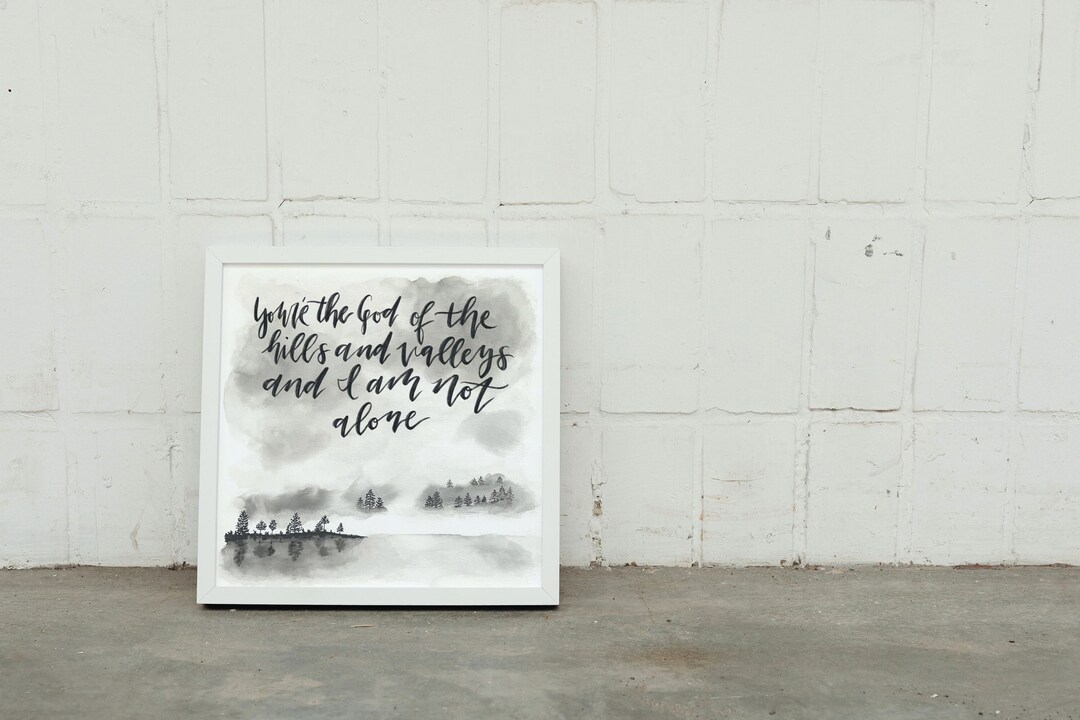 You're the God of the
hills and valleys
and I am not
alone